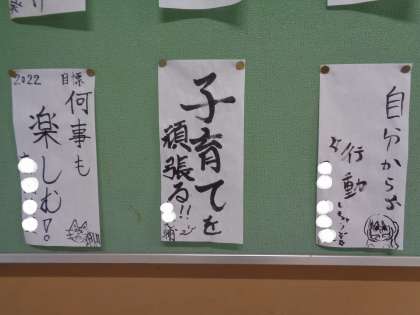 2022 目標
何事も
楽しむ!
子育てを
頑張る!!
自分から
行動